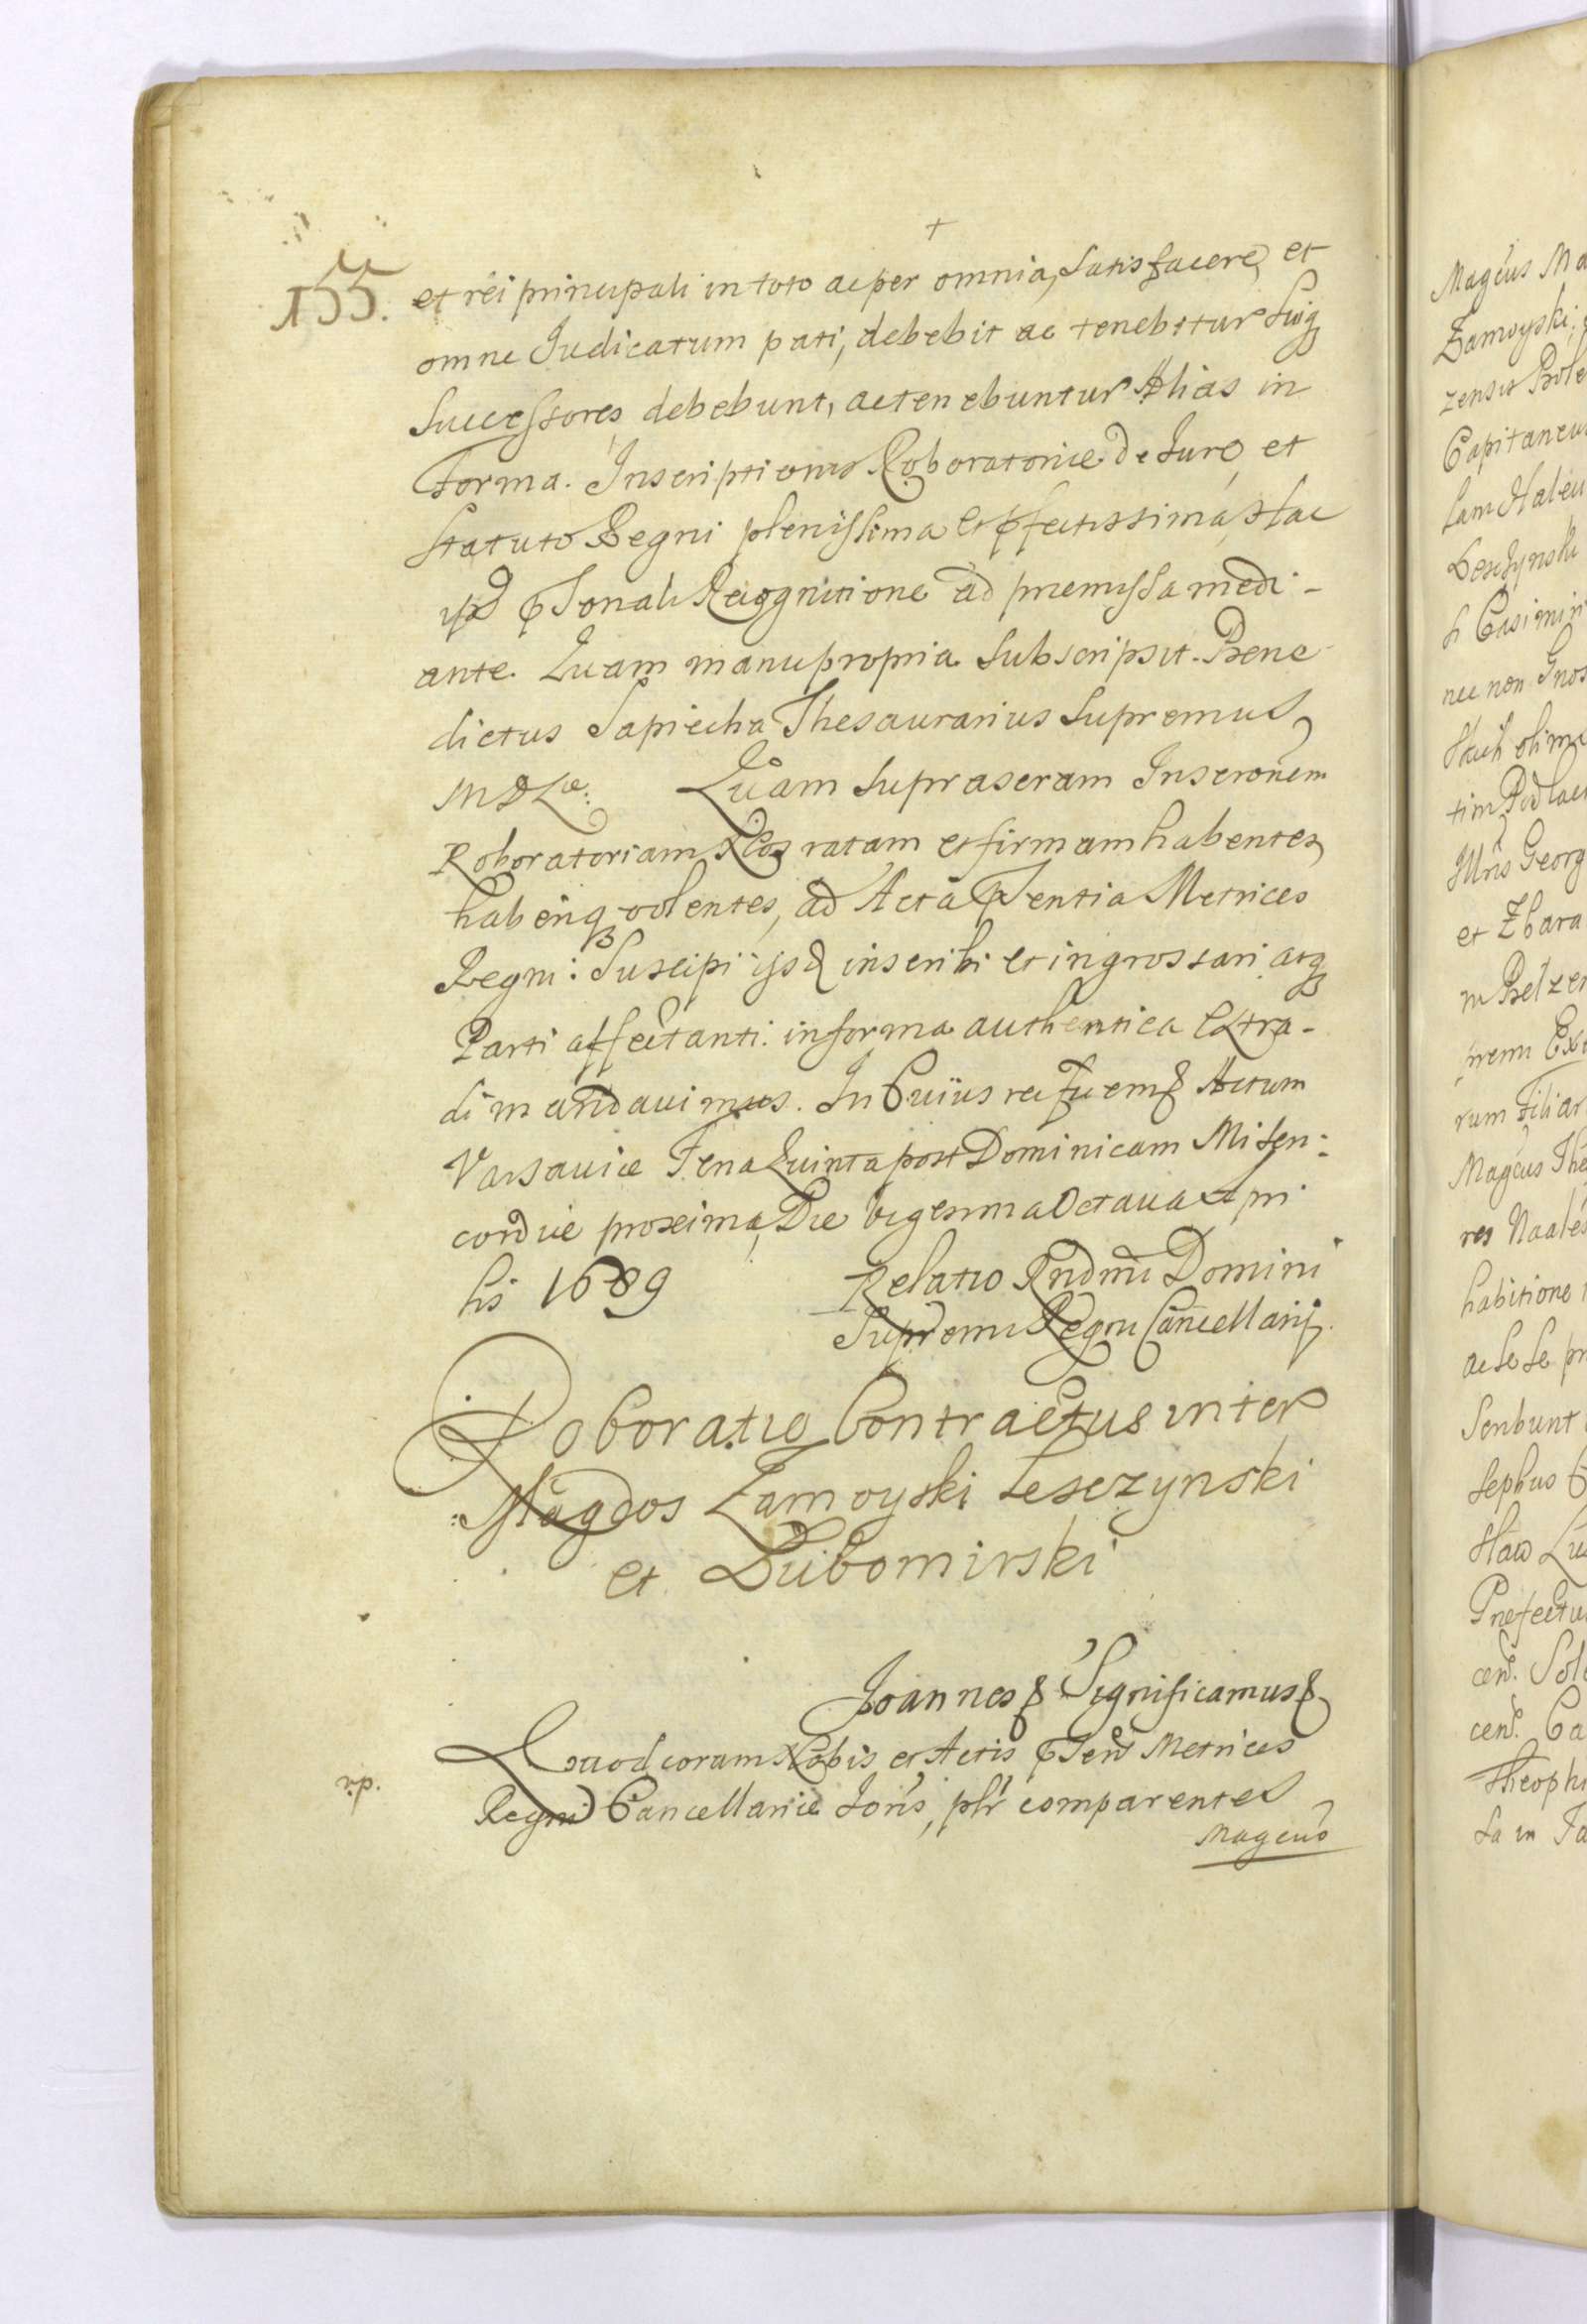 +
155.
et rei principali in toto ac per omnia, satisfacere, et
omne Judicatum pati, debebit ac tenebitur Suiq3
Successores debebunt, ac tenebuntur Alias in
Forma. Inscriptionis Roboratoriæ de Jure, et
Statuto Regni plenissima et pfectissima, Hac
ipsâ psonali Recognitione ad præmissa medi-
ante. Quam manu propria subscripsit. Bene
dictus Sapiecha Thesaurarius Supremus
M D Læ: Quam supraseram Inscronem
Roboratoriam Nos ratam et firmam habentes
haberiq3 volentes, ad Acta psentia Metrices
Regni: Suscipi ijsq inscribi et ingrossari atq3
Parti affectanti: in forma authentica extra-
di mandavimus. In Cuius rei fidem & Actum
Varsaviæ Feria Quinta post Dominicam Miseri:
cordiæ proxima, Die vigesima Octava Apri
lis 1689 Relatio Rndmi Domini
Supremi Regni Cancellarij.
Roboratio Contractus inter
Magcos Zamoyski Lesczynski
et Lubomirski
Joannes & Significamus &
Quod coram Nobis et Actis psent Metrices
Regni Cancellariæ Joris, plr comparentes
Magcus
Magcus Ma
Zamoyski,
zensis Bole
Capitaneus
Leszczynski
si Casimiri
nec non Gnos
olim
tim Podlac
Illris Georg
et Zbara
m Belzen
rum filiar
Magcus The
res Naales
habitione
ac se se pr
Scribunt
sephus
Præfectu
cen. Sol
cen. Ca
Theophi
sa in Fa